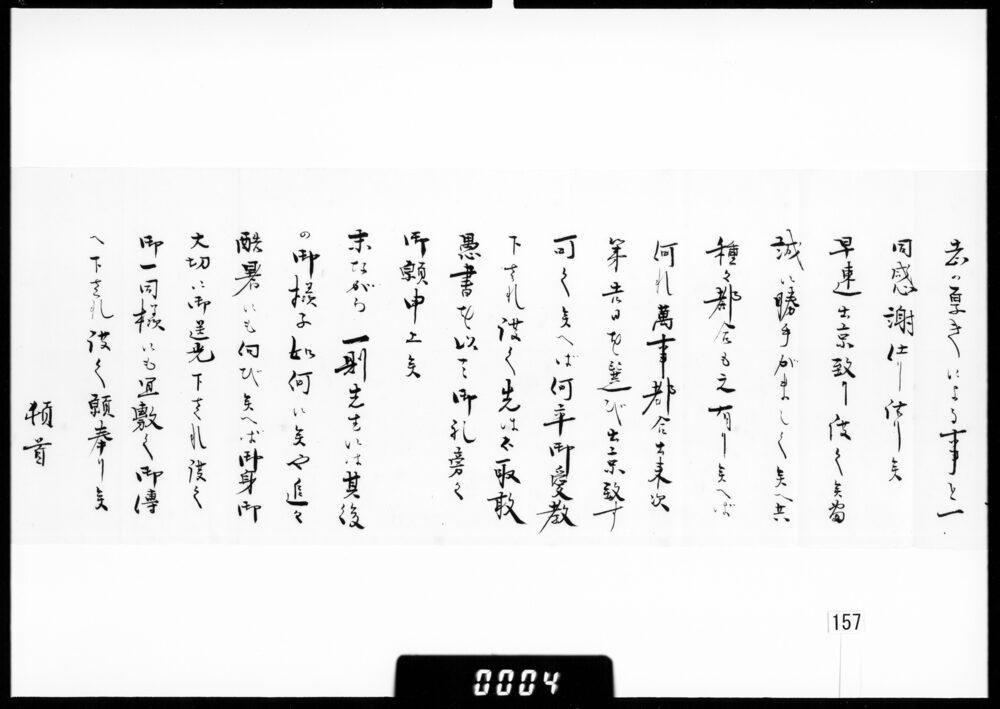 志の厚きによる事と一
同感謝仕り居り候
早速出京致り度く候當
誠に勝手がましく候へ共
種々都合も之有り候へば
何れ萬事都合出来次
第吉日を選び出京致す
可く候へば何卒御愛教
下され度く先は不取敢
愚書を以て御礼旁々
御願申上候
末ながら一則先生には其後
の御様子如何に候や追々
酷暑にも向ひ候へば御身御
大切に御送光下され度く
御一同様にも宜敷く御傳
へ下され度く願奉り候
頓首
157
0004